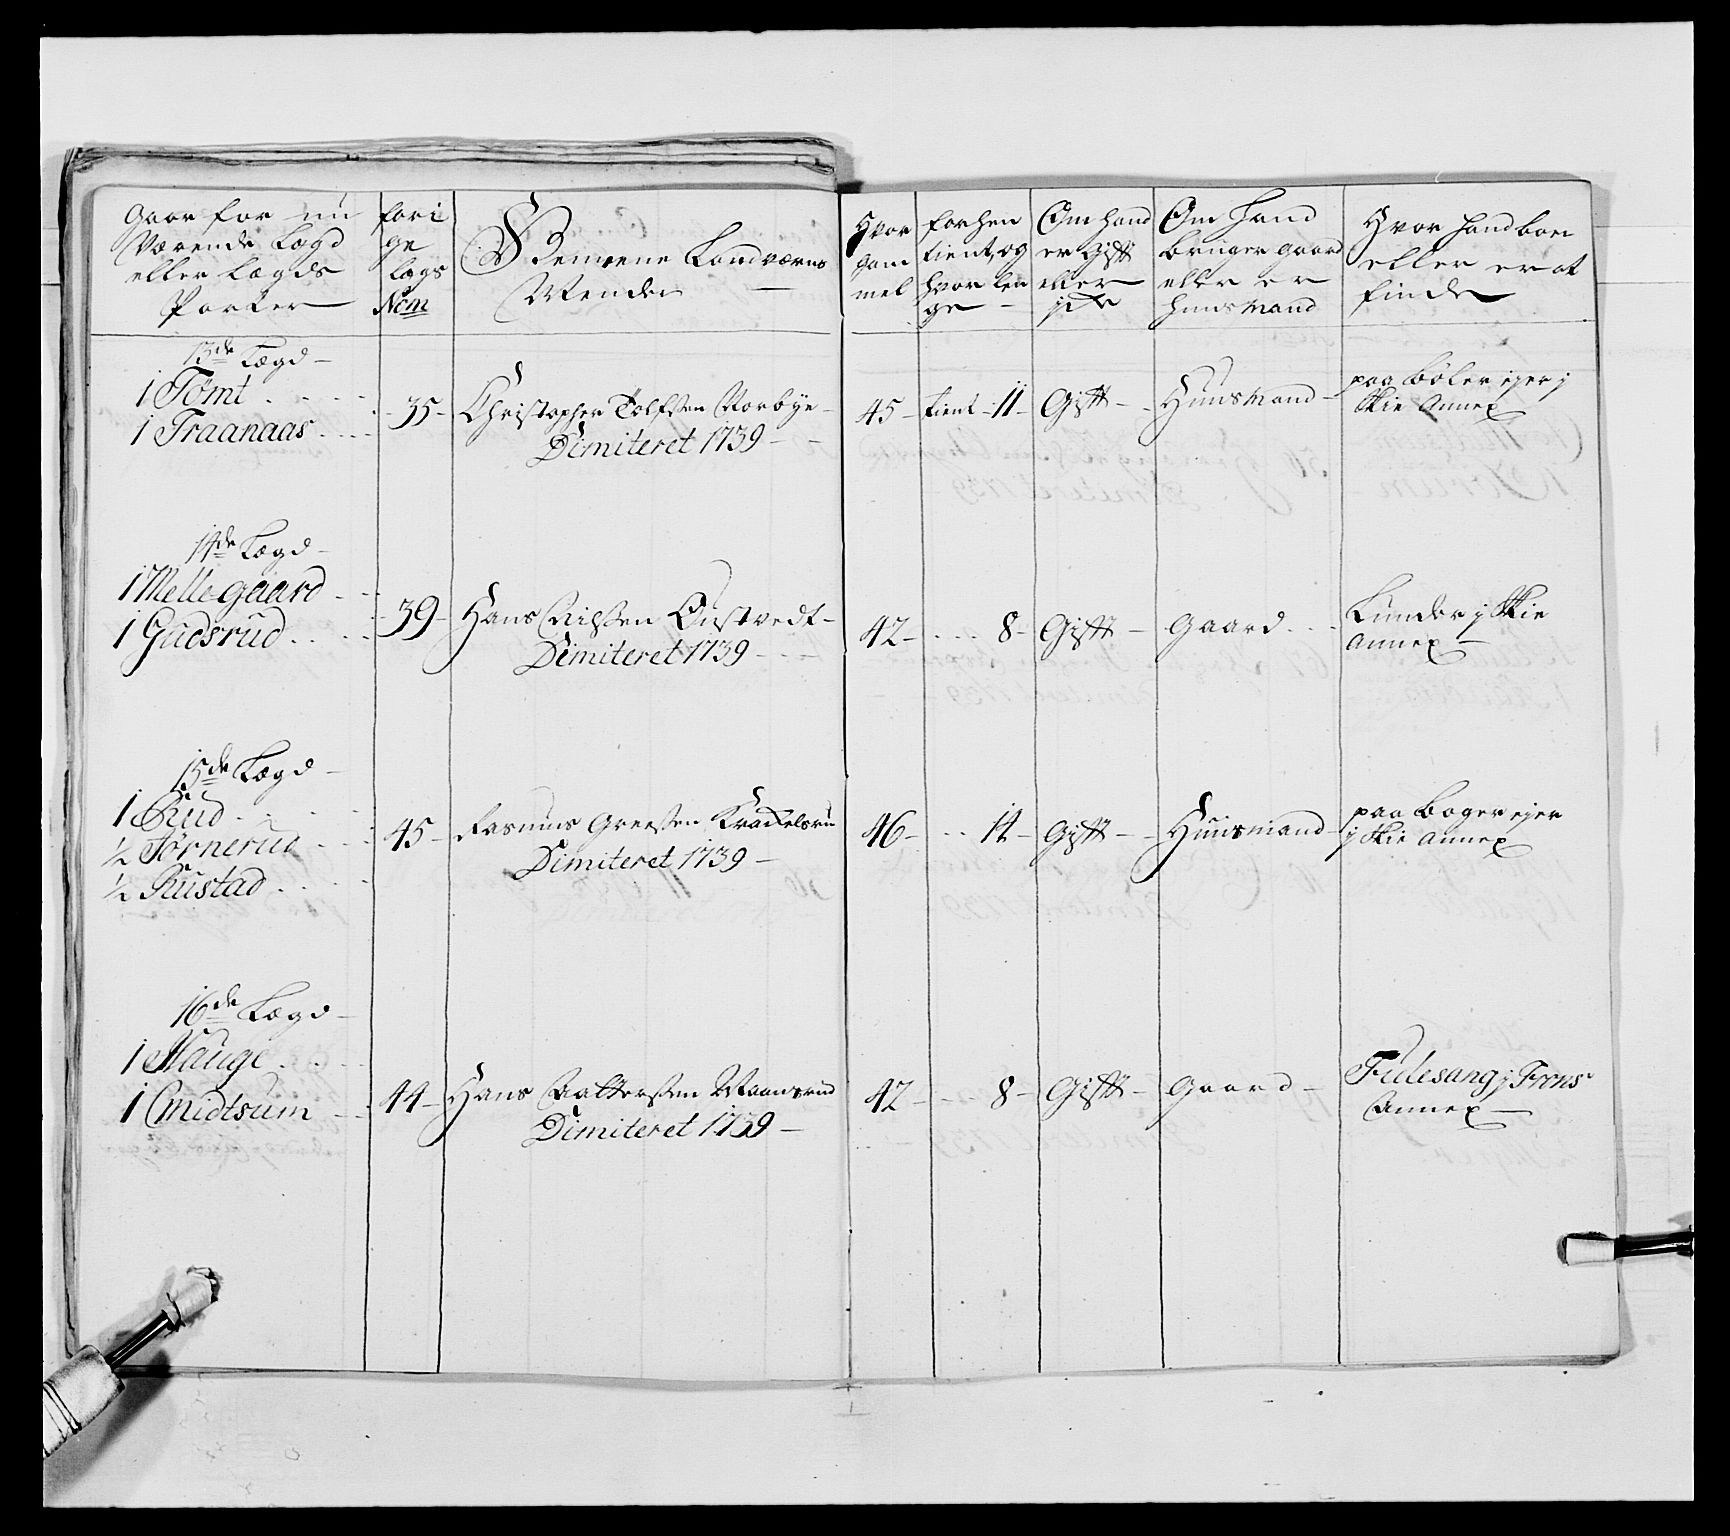 Gaar for nu
Værende Lægd
eller Lægds
Parter
fori
ge
Lægs
Nom
Bemeene Landværns
Mender
Hvor
gam
mel
forhen
tient, og
hvor len
ge
Om hand
er Gift
eller
Om hand
bruger gaard
eller er
huusmand
Hvor hand boer
eller er at
finde
13de Lægd
1 Tømt
1 Traanaas
35 Christopher Tolfsen Norbye
Dimiteret 1739
45 tient 11 Gift Huusmand
paa Bøler ejer j
Skie Annex
14de Lægd
1 Mellegaard
1 Gudsrud
39 Hans Nilssen Øustvedt
Dimiteret 1739
42 8 Gift Gaard
Lunder j Skie
Annex
15de Lægd
1 Rud
1/2 Tørnerud
1/2 Rustad
45 Rasmus Greesen Krachelsru
Dimiteret 1739
46 14 Gift Huusmand
paa Boger ejer
j Skie Annex
16de Lægd
1 Hauge
1 Smidtsum
44 Hans Waansrud
Dimiteret 1739
42 8 Gift Gaard
Fulesang j Frons
Annex